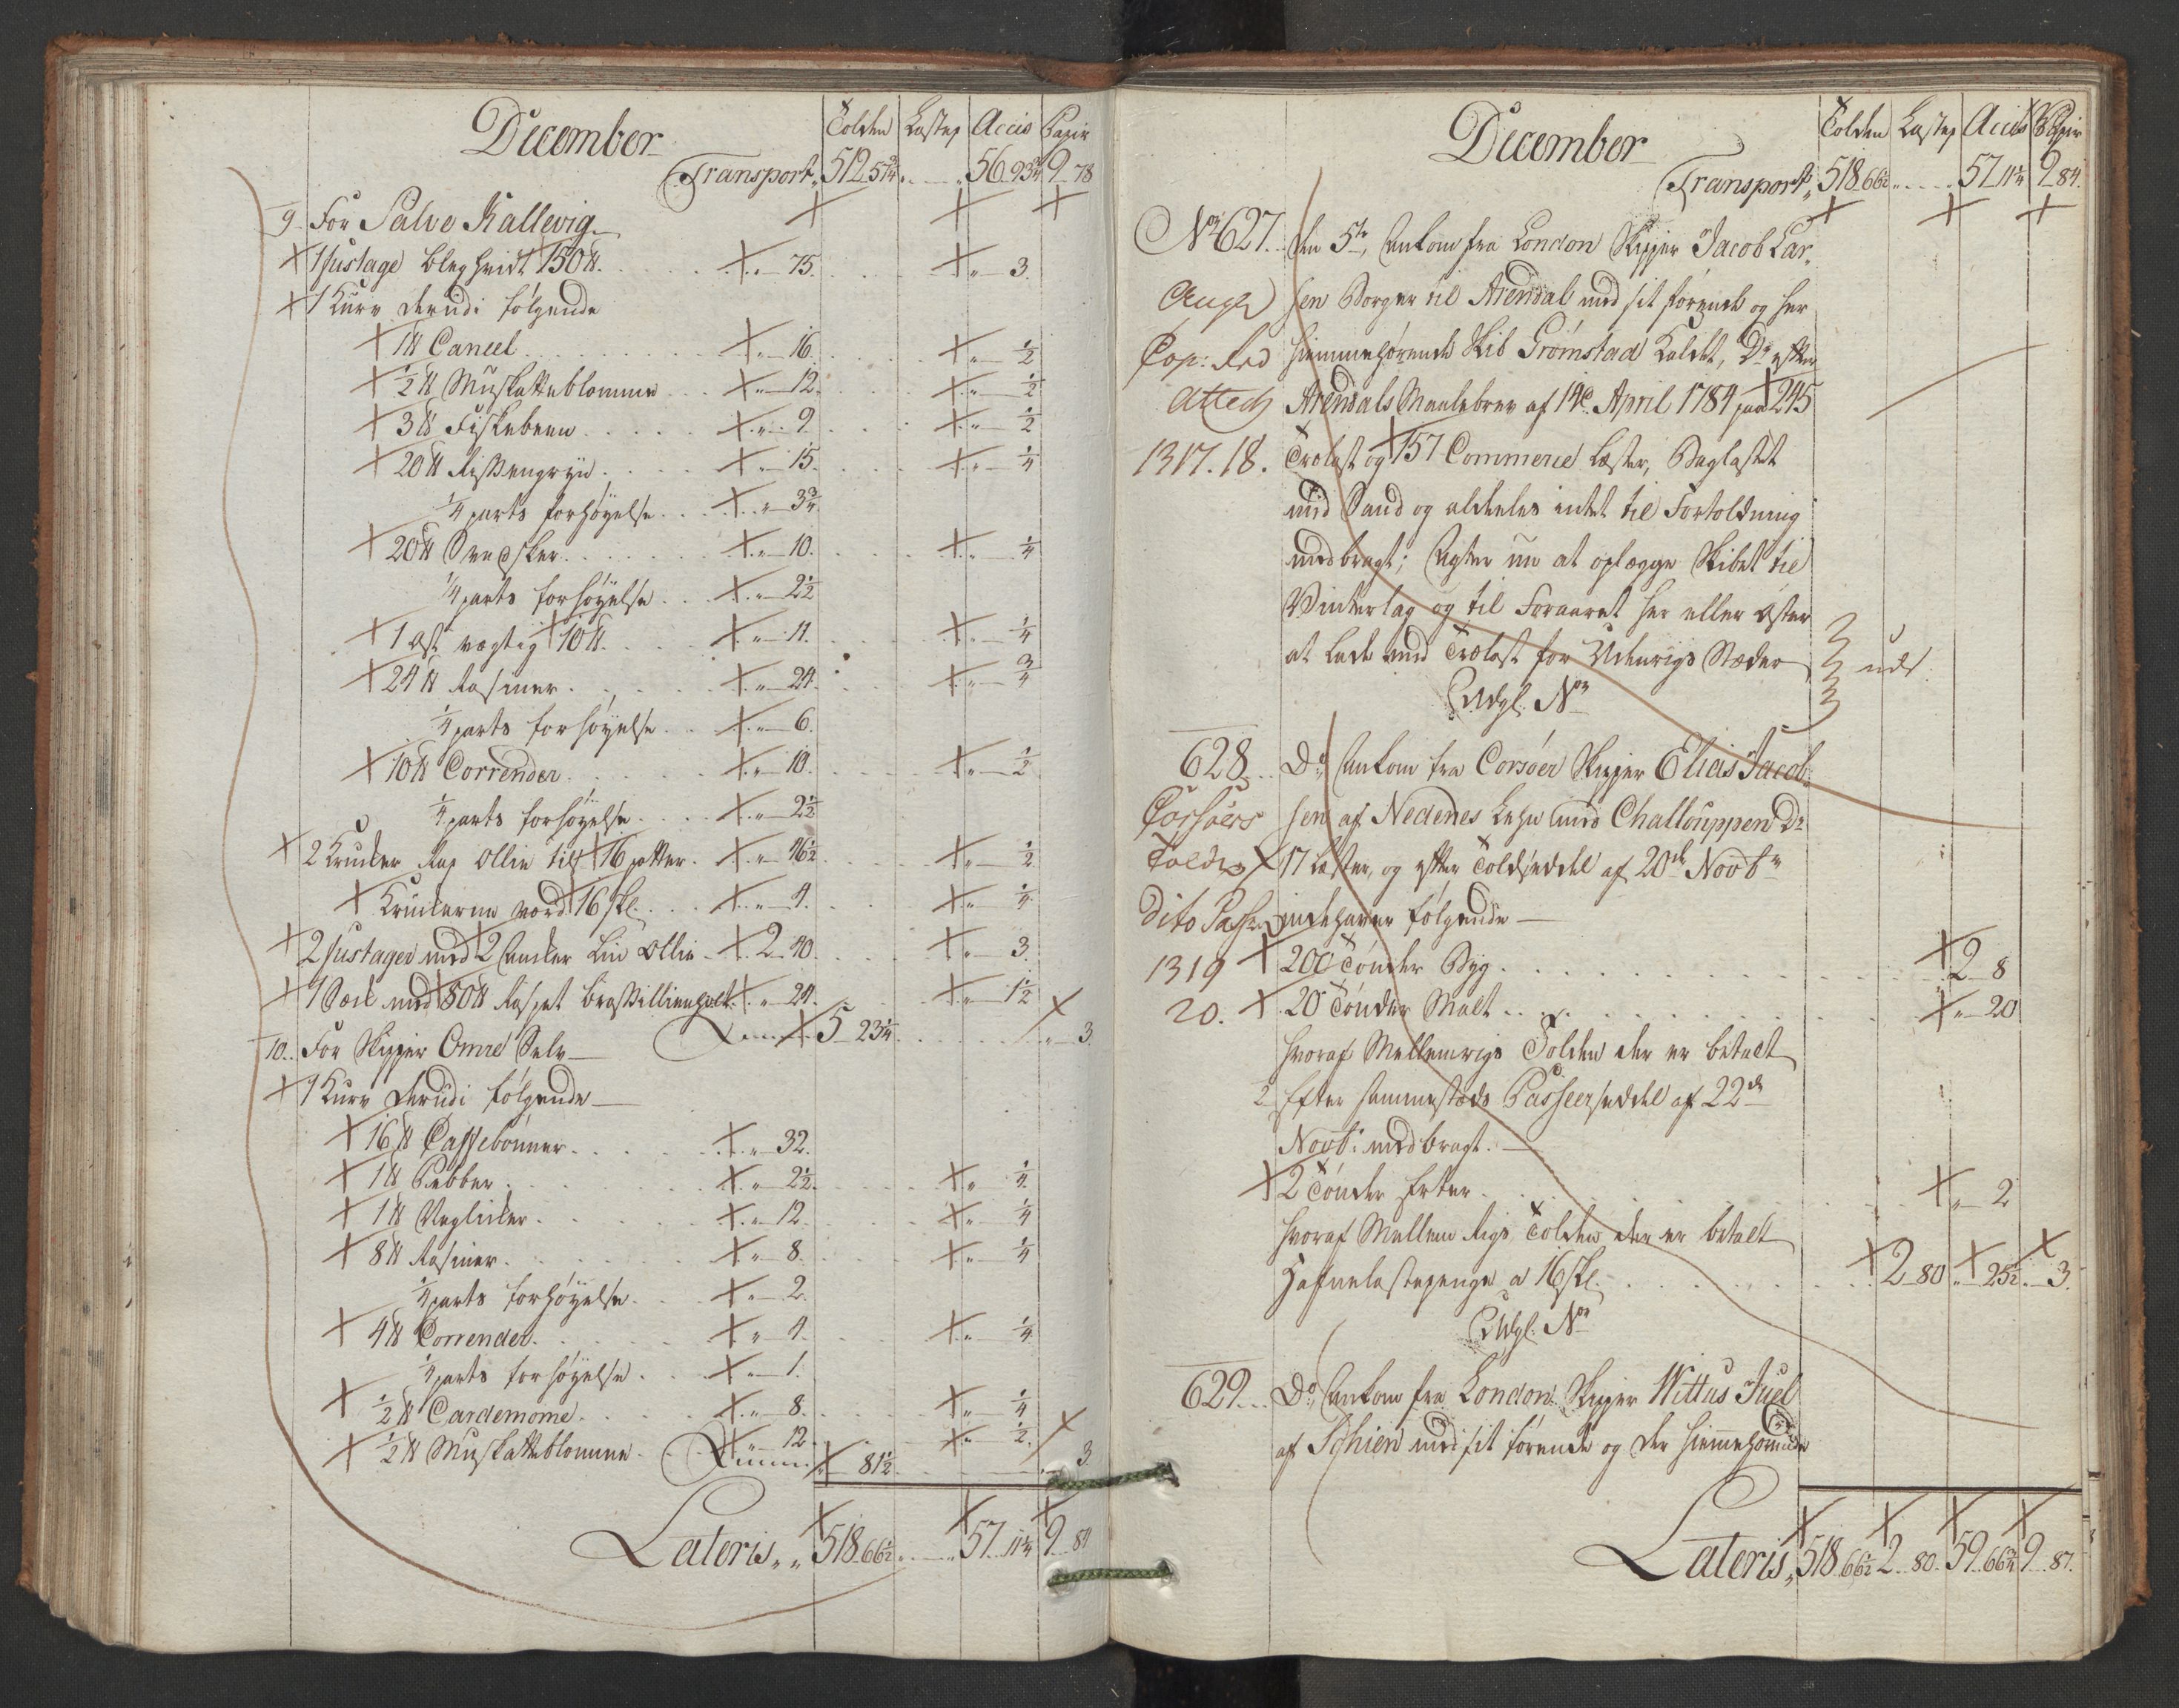 December
Tolden Lastep Accis Papir
Transport „ 512 57¾ „ 56 93¾ 9 78
9. For Salve Kallevig
1 fustage bleghvidt 150 ℔ „ 75. „ 3.
1 Kurv derudi følgende
1 ℔ Caneel „ 16. „ ½
½ ℔ Muskatteblomme „ 12. „ ½
3 ℔ Fiskebeen „ 9. „ ½
20 ℔ Rissengryn „ 15. „ ¼
¼ parts forhøyelse „ 3¾
20 ℔ Svedsker „ 10. „ ¼
¼ parts forhøyelse „ 2½
1 Ost vægtig 10 ℔ „ 11. „ ¼
24 ℔ Rosiner „ 24. „ ¾
¼ parts forhøyelse „ 6.
10 ℔ Corrender „ 10. „ ½
¼ parts forhøyelse „ 2½
2 Krukker Rap Ollie til 16 potter „ 16½ „ ½
Krukkerne værd 16 skl. „ 4. „ ¼
2 fustager med 2 Anker Lin Ollie 2 40. „ 3.
1 Sæk med 80 ℔ Raspet brassillienholt „ 24. „ 1½
5 23¼ „ 3.
10. For Skipper Omré Selv
1 Kurv derudi følgende
16 ℔ Caffebønner „ 32.
1 ℔ Pebber „ 2½ „ ¼
1 ℔ Negliker „ 12. „ ¼
8 ℔ Rosiner „ 8. „ ¼
¼ parts forhøyelse „ 2.
4 ℔ Corrender „ 4. „ ¼
¼ parts forhøyelse „ 1.
½ ℔ Cardemome „ 8. „ ¼
½ ℔ Muskatteblomme „ 12. „ ½
„ 81½ „ 3.
Lateris „ „ 518 66½ „ 57 11¼ 9 84
December
Tolden Lastep Accis Papir
Transport „ 518 66½ „ 57 11¼ 9 84.
No 627. Den 5te, Ankom fra London Skipper Jacob Lar„
sen Borger til Arendal med sit førende og her
Cop: hiemmehørende Skib Grømstad Kaldet, Dr efter
Attest Arendals Maalebrev af 14de April 1784 paa 245
1317. 18. Trælast og 157 Commerce Læster, Baglastet
med Sand og aldeeles intet til Fortoldning
medbragt; Agter nu at oplægge Skibet til
Winterlag og til Foraaret her eller Øster
at lade med Trælast for Udenrigs Stæder
Udgl. No
628. Do Ankom fra Corsøer Skipper Elias Jacob„
Corsøers sen af Nedenes Lehn med Challouppen Dr
Tolds. 17 Læster, og efter Toldseddel af 20de Novbr
Dito Passe. indehaver følgende
1319 200 Tønder Byg 2 8
20. 20 Tønder Malt „ 20
hvoraf Mellemrigs Tolden der er betalt
2 Efter sammestæds Passeerseddel af 22de
Novbr medbragt.
2 Tønder Erter „ 2
hvoraf Mellem Rigs Tolden der er betalt
Hafnelastepenge a 16 skl. 2 80 „ 25½ „ 3.
Udgl. No
629. Do Ankom fra London Skipper Wittus Juel
af Schien med sit førende og der hiemmehørende
Lateris „ 518 66½ 2 80. 59 66¾ 9 87.